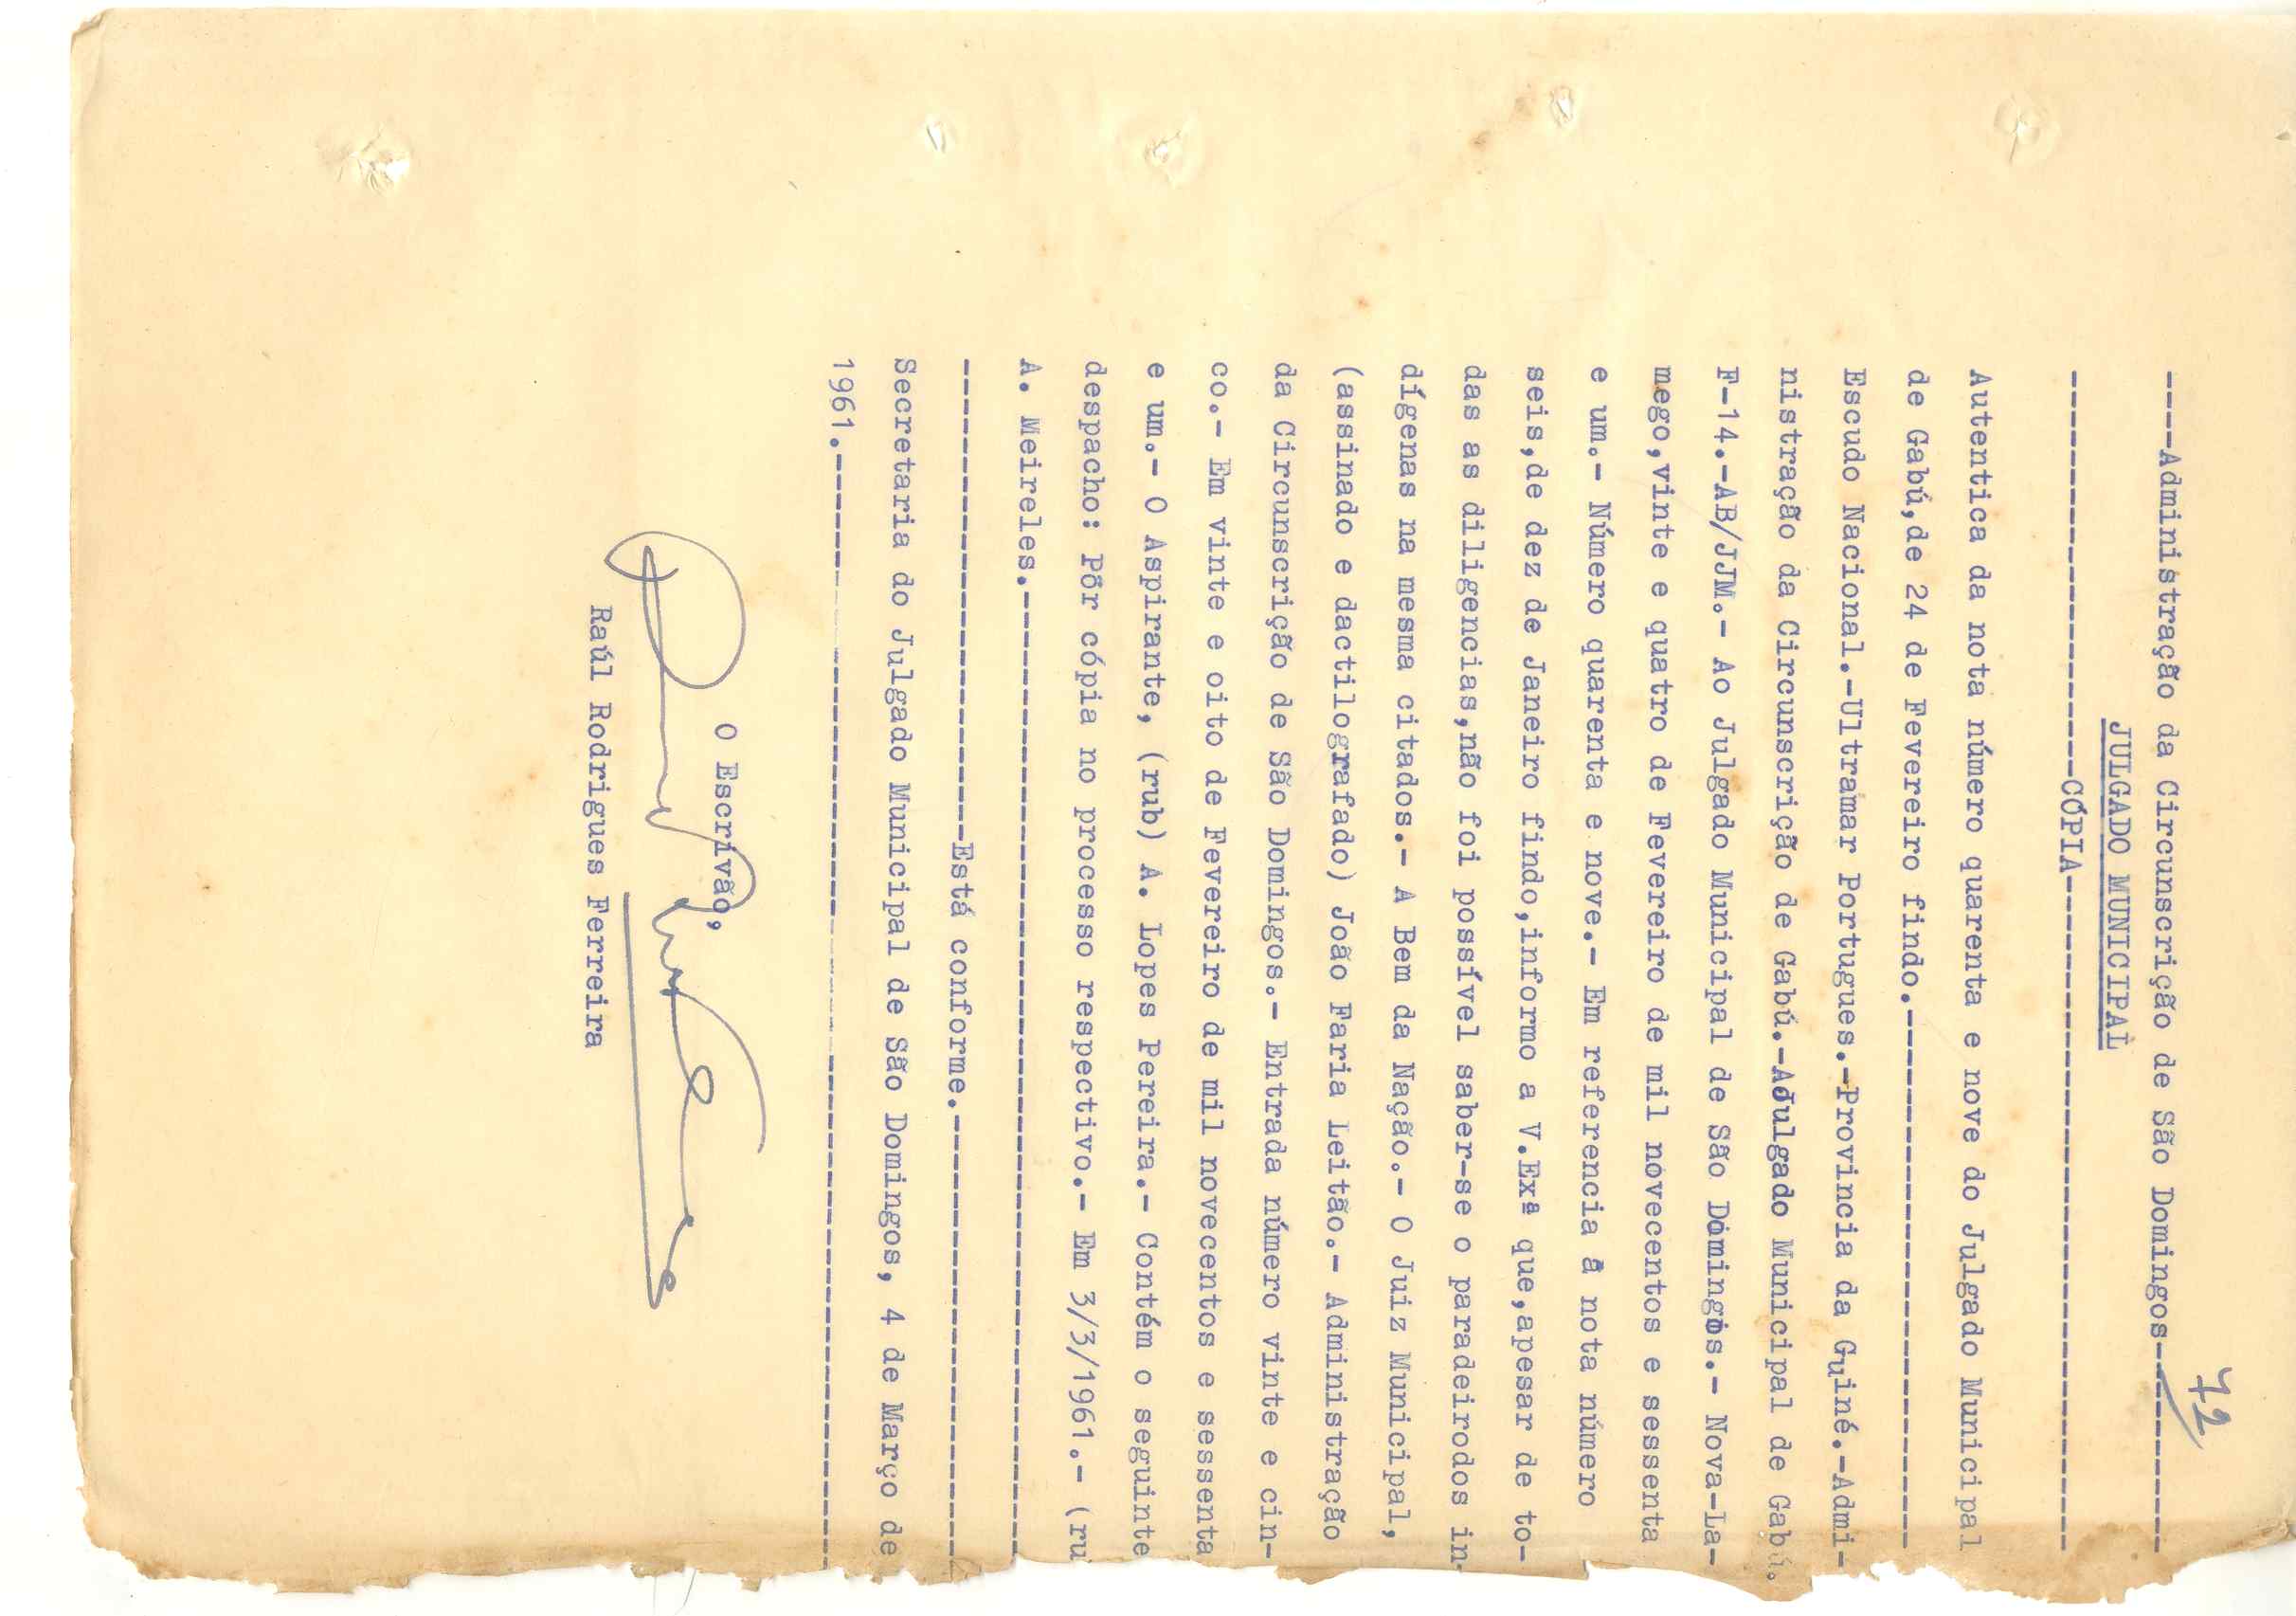 72
----Administração da Circunscrição de São Domingos-----------
JULGADO MUNICIPAL
--------------------------CÓPIA------------------------------------------
Autentica da nota número quarenta e nove do Julgado Municipal
de Gabú,de 24 de Fevereiro findo.-----------------------------------
Escudo Nacional.-Ultramar Portugues.-Provincia da Guiné.-Admi-
nistração da Circunscrição de Gabú.-AJulgado Municipal de Gabú.
F-14.-AB/JJM.- Ao Julgado Municipal de São Domingos.- Nova-La-
mego,vinte e quatro de Fevereiro de mil novecentos e sessenta
e um.- Número quarenta e nove.- Em referencia á nota número
seis,de dez de Janeiro findo,informo a V.Exª que,apesar de to-
das as diligencias,não foi possível saber-se o paradeirodos in-
dígenas na mesma citados.- A Bem da Nação.- O Juiz Municipal,
(assinado e dactilografado) João Faria Leitão.- Administração
da Circunscrição de São Domingos.- Entrada número vinte e cin-
co.- Em vinte e oito de Fevereiro de mil novecentos e sessenta
e um.- O Aspirante, (rub) A. Lopes Pereira.- Contém o seguinte
despacho: Pôr cópia no processo respectivo.- Em 3/3/1961.- (ru
A. Meireles.--------------------------------------------------------------
------------------------------Está conforme.----------------------------
Secretaria do Julgado Municipal de São Domingos, 4 de Março de
1961.----------------------------------------------------------------------
O Escrivão,
Raúl Rodrigues Ferreira